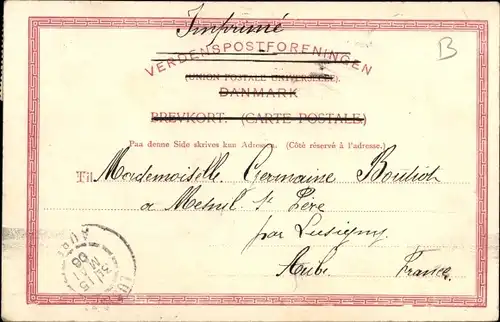 Imprimé
VERDENSPOSTFORENINGEN
(UNION POSTALE UNIVERSELLE).
DANMARK
BREVKORT. (CARTE POSTALE)
B
Paa denne Side skrives kun Adressen. (Côté réservé à l'adresse.)
Til Mademoiselle Germaine Bouliot
a Mesnil St Père
par Lusigny
Aube France